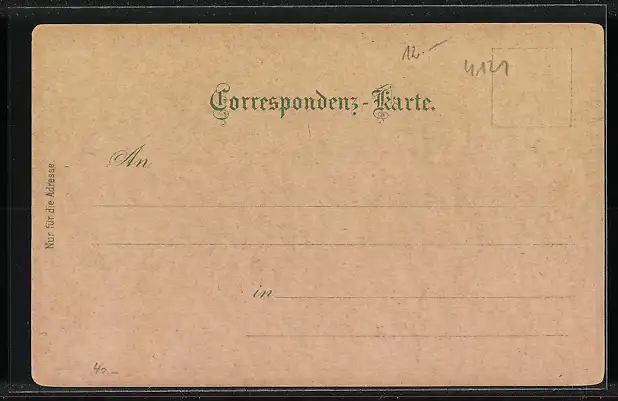 12.–
4121
Correspondenz-Karte.
An
Nur für die Adresse.
in